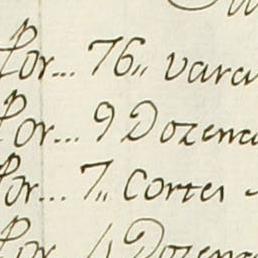 Por... 76,, vara
Por... 9 Dozena
Por... 7,, Cortes
Por